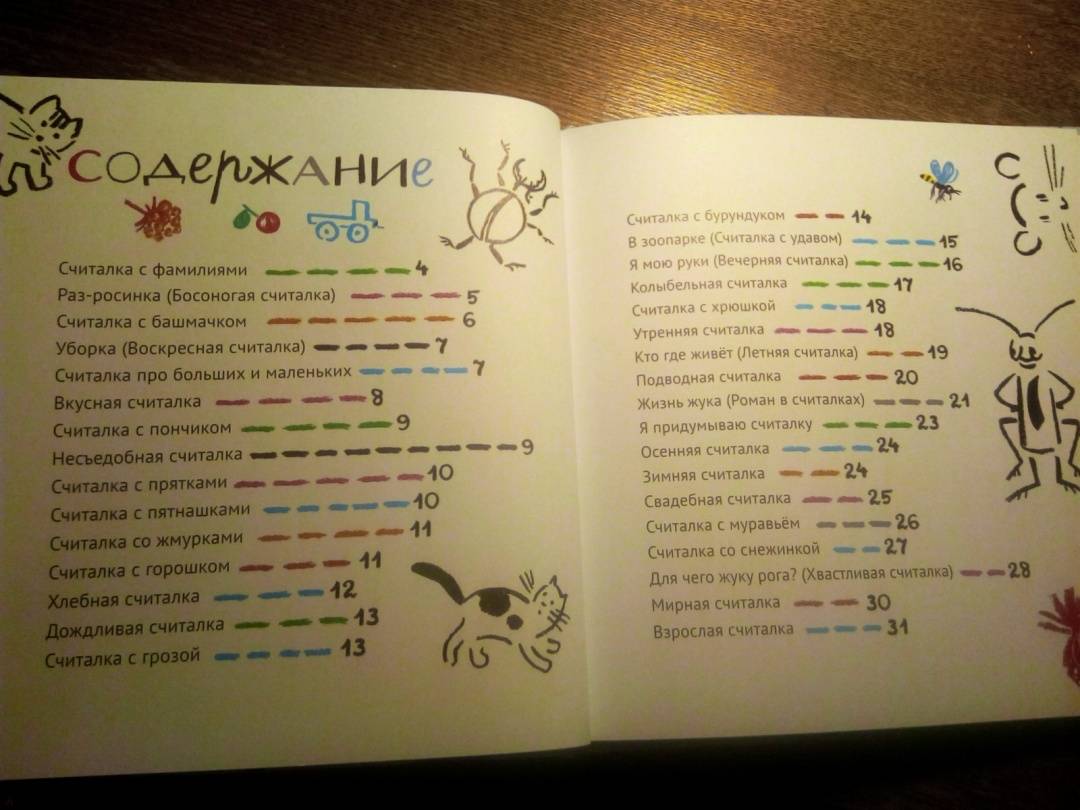 содержание
Считалка с фамилиями 4
Раз-росинка (Босоногая считалка) 5
Считалка с башмачком 6
Уборка (Воскресная считалка) 7
Считалка про больших и маленьких 7
Вкусная считалка 8
Считалка с пончиком 9
Несъедобная считалка 9
Считалка с прятками 10
Считалка с пятнашками 10
Считалка со жмурками 11
Считалка с горошком 11
Хлебная считалка 12
Дождливая считалка 13
Считалка с грозой 13
Считалка с бурундуком 14
В зоопарке (Считалка с удавом) 15
Я мою руки (Вечерняя считалка) 16
Колыбельная считалка 17
Считалка с хрюшкой 18
Утренняя считалка 18
Кто где живёт (Летняя считалка) 19
Подводная считалка 20
Жизнь жука (Роман в считалках) 21
Я придумываю считалку 23
Осенняя считалка 24
Зимняя считалка 24
Свадебная считалка 25
Считалка с муравьём 26
Считалка со снежинкой 27
Для чего жуку рога? (Хвастливая считалка) 28
Мирная считалка 30
Взрослая считалка 31